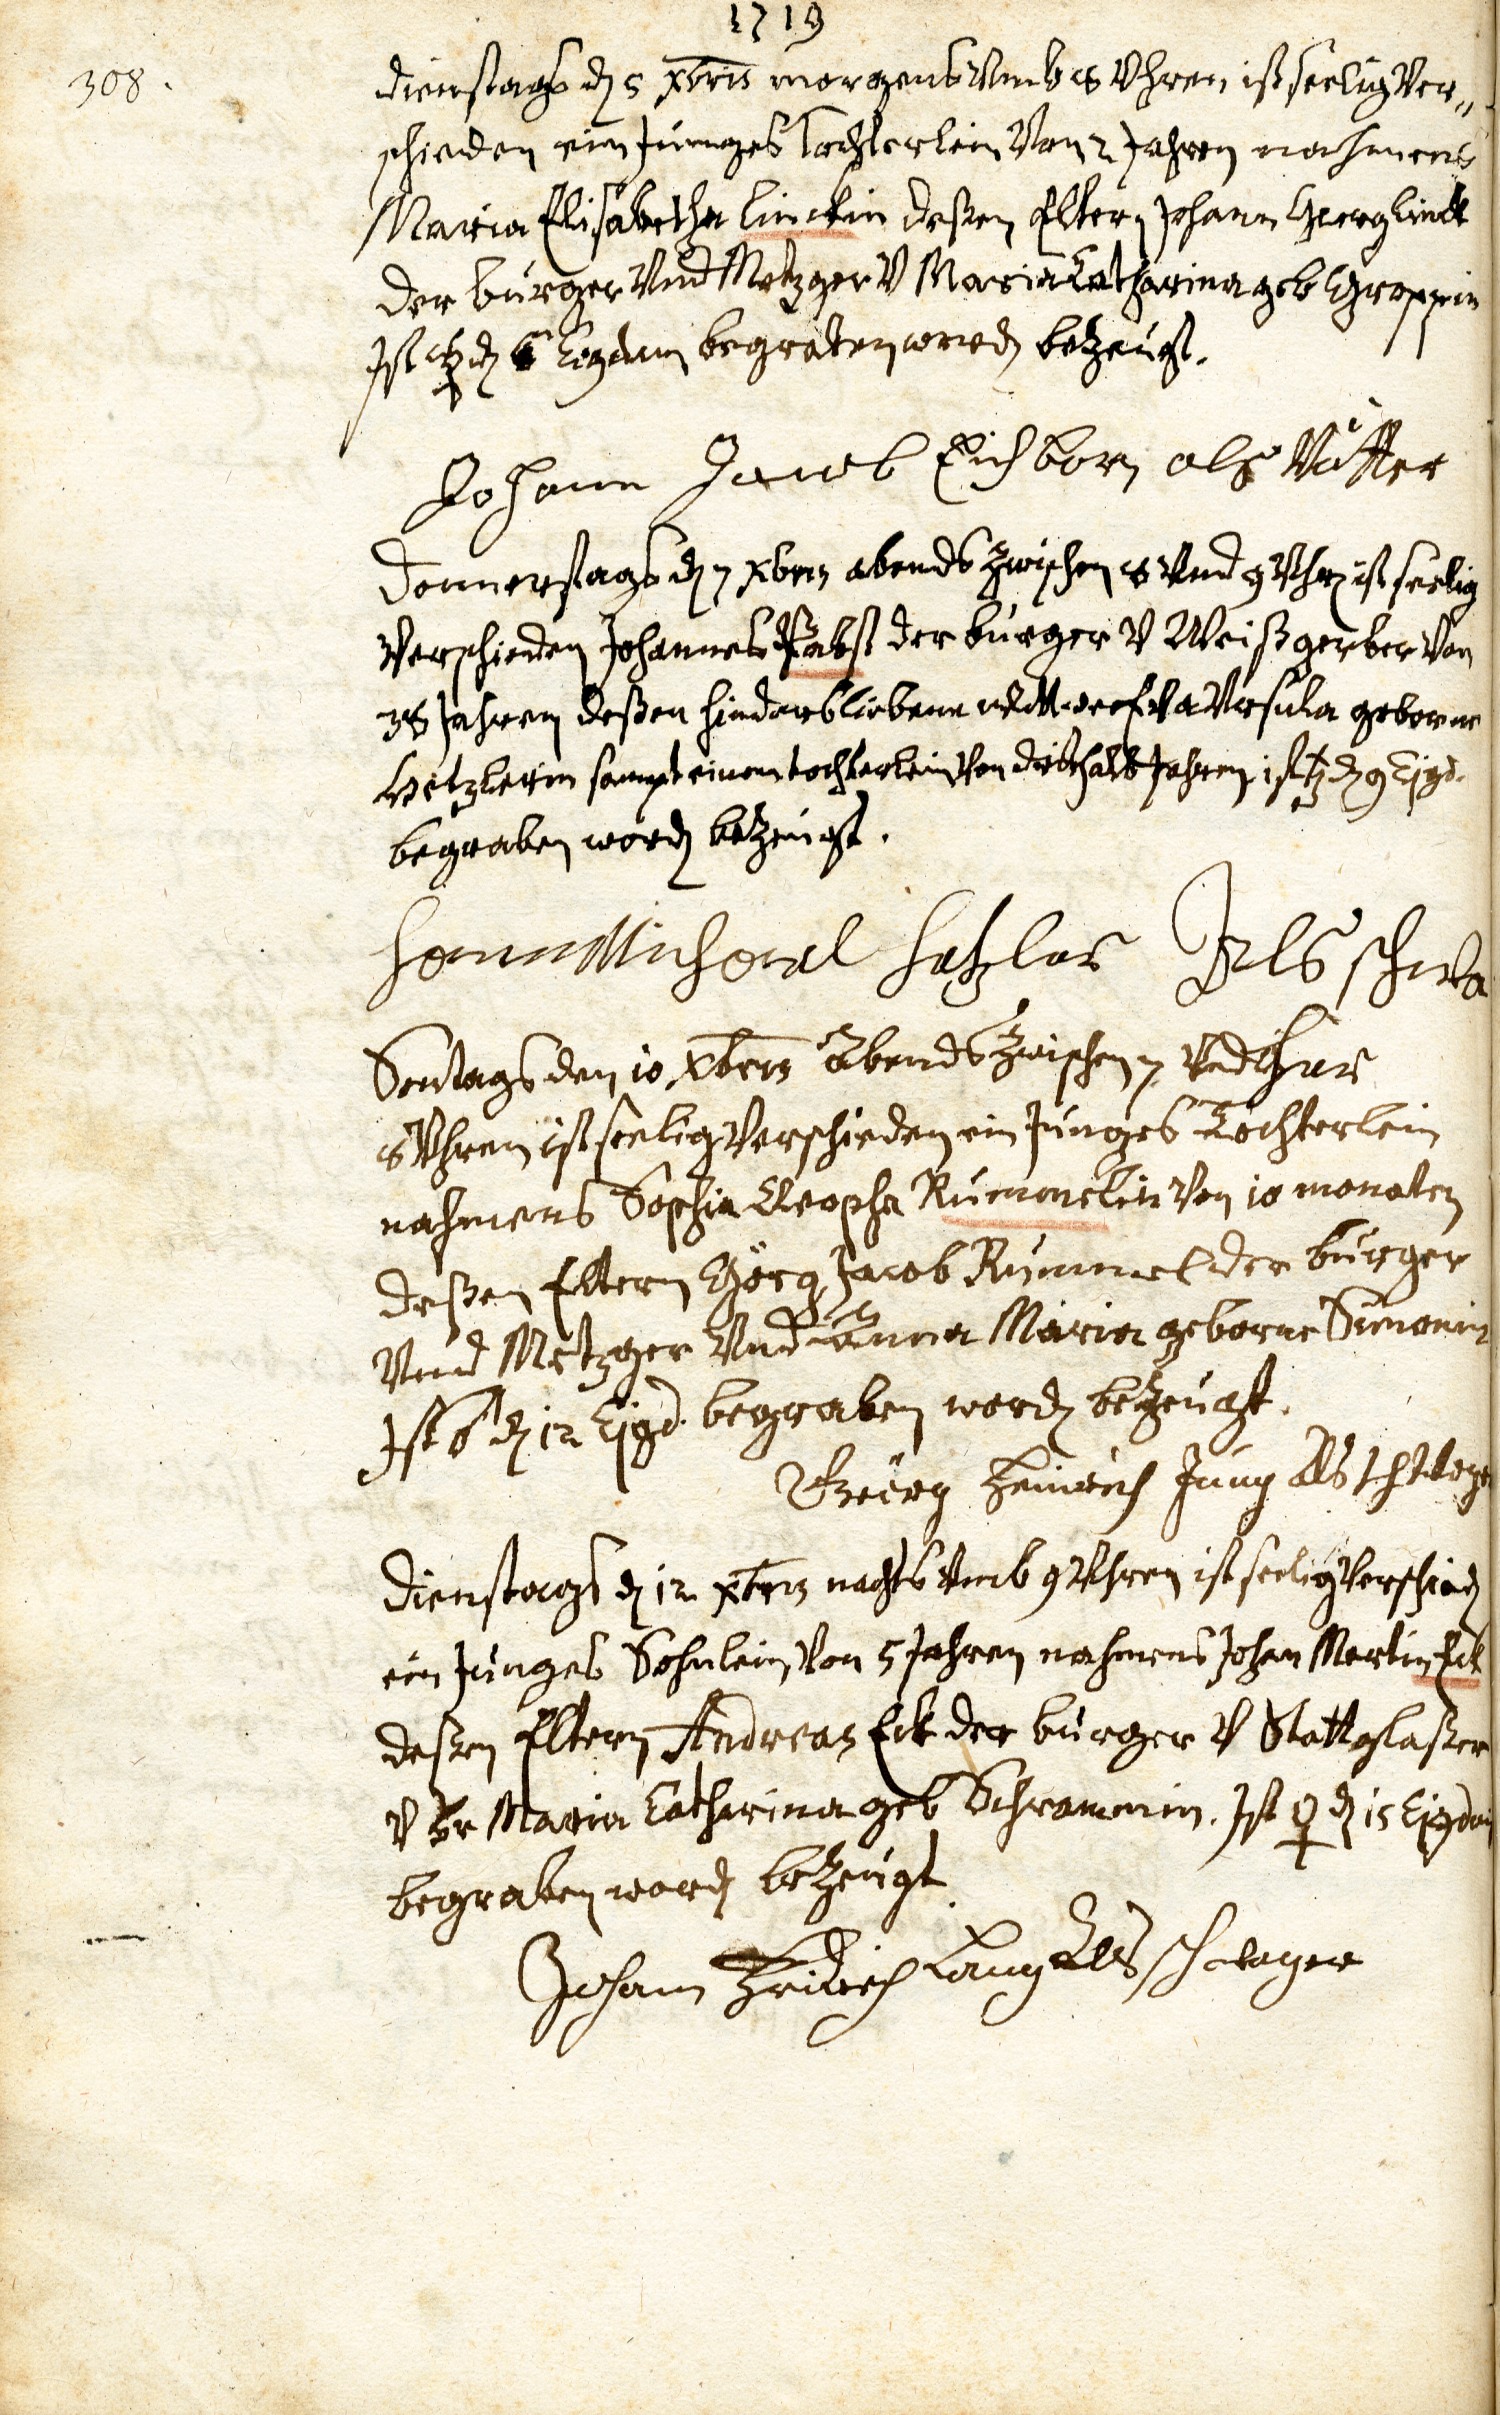 1719
308.
dienstags dẽ 5 Xbris morgens Vmb 8 Vhren ist seelig Ver„
schieden ein Junges Tochterlein Von 2 Jahren nahmens
Maria Elisabetha Linckin deßen Eltern Johann Georg Linck
der burger Vnd Metzger V Maria Catharina geb Groppin
Ist dẽ 6 Ejgdem begraben word betzeugt.
Johann Jacob Eichborn als Vätter
Donnerstags dẽ 7 Xbris abends zwischen 8 Vnd 9 Vhr ist seelig
Verschieden Johannes Pabst der burger V Weißgerber Von
38 Jahren deßen hinderbliebene Eva Vrsula geborne
Hetzlerin sampt einem tochterlein Von dritthalb Jahren ist ♄ dẽ 9 Ejgd.
begraben word betzeugt.
Hanns Michael Hetzler Als schwa
Sontags den 10 Xbris Abends zwischen 7 Vnd
8 Vhren ist seelig Verschieden ein Junges Tochterlein
nahmens Sophia Cleopha Rummelin Von 10 monaten
deßen Eltern Görg Jacob Rummel der burger
Vnd Metzger Vnd Anna Maria geborne Simonin
Ist ♂ dẽ 12 Ejgd. begraben word betzeugt.
Georg Heinrich Jung Als schwage
Dienstags dẽ 12 Xbris nachts Vmb 9 Vhren ist seelig Verschied
ein Junges Sohnlein Von 5 Jahren nahmens Johan Martin Eck
deßen Eltern Andreas Eck der burger V Stattglaßer
V Maria Catharina geb Schrammin. Ist ♀ dẽ 15 Ejgdem
begraben word betzeugt
Johann Lang Als schwager